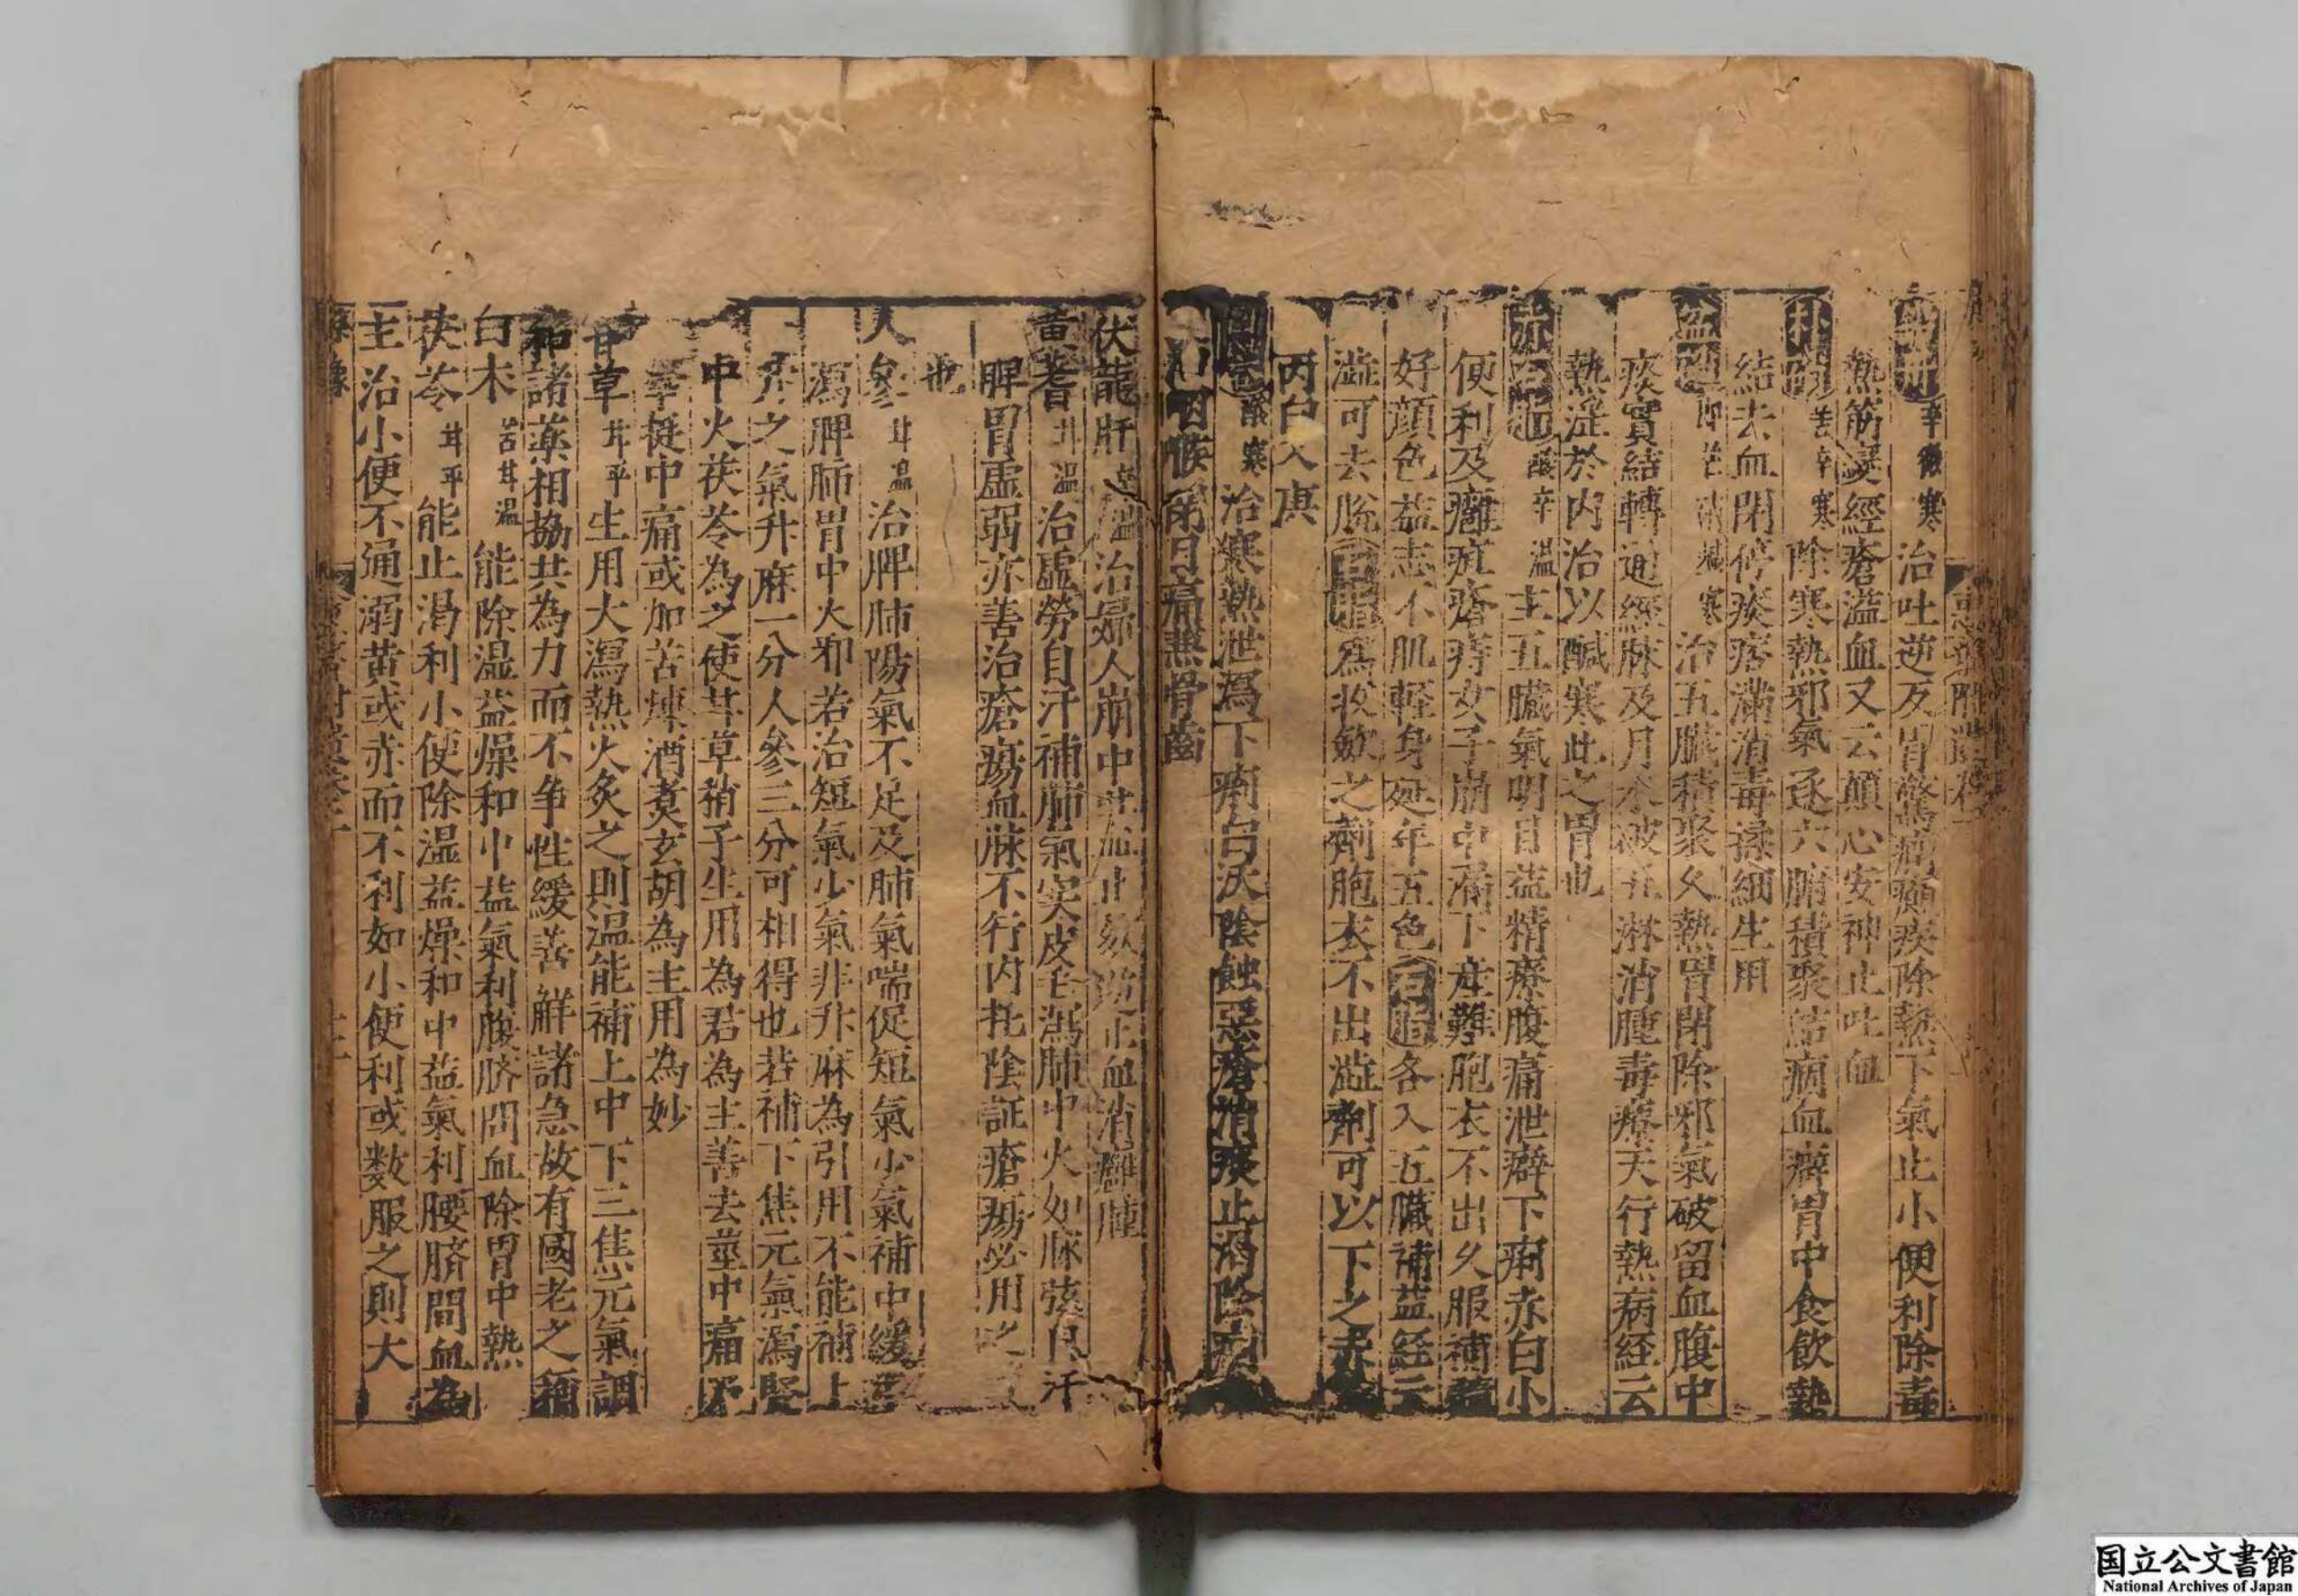 辛微寒治吐逆反胃驚癇癲疾除熱下氣止小便利除毒
熱筋攣經瘡溢血又云顛心安神止吐血
朴硝苦辛寒除寒熱邪氣逐六腑積聚結癖血癖胃中食飲熱
結去血閉停痰痞滿消毒揉細生用
盆硝治五臟積聚久熱胃閉除邪氣破留血腹中
痰實結轉通經脉及月水破五淋消腫毒療天行熱病經云
熱淫於内治以鹹寒此之胃也
赤石脂酸辛温主五臟氣明目益精療腹痛泄癖下痢赤白小
便利及癰疽瘡痔女子崩中漏下産難胞衣不出久服補髓
好顔色益志不肌輕身延年五色石脂各入五臟補益經云
澁可去脱石脂爲收斂之劑胞衣不出澁劑可以下之赤入
丙白入庚
寒治寒熱泄瀉下痢白沃陰蝕惡瘡消痰止渴除
咽喉閉目痛熏骨齒
伏龍肝温治婦人崩中吐血止欬逆止血消癰腫
黄耆甘温治虚勞自汗補肺氣实皮毛瀉肺中火如脉弦自汗
脾胃虚弱亦善治瘡瘍血脉不行内托陰証瘡瘍必用之
也
人參甘温治脾肺陽氣不足及肺氣喘促短氣少氣補中緩
瀉脾肺胃中火邪若治短氣少氣非升麻為引用不能補上
升之氣升麻一分人參三分可相得也若補下焦元氣瀉腎
中火茯苓為之使甘草稍子生用為君為主善去莖中痛
莖中痛或加苦楝酒煑玄胡為主用為妙
甘草甘平生用大瀉熱火炙之則温能補上中下三焦元氣調
和諸薬相協共為力而不争性緩善解諸急故有國老之稱
白术苦甘温能除湿益燥和中益氣利腹脐間血除胃中熱
茯苓甘平能止渴利小便除湿益燥和中益氣利腰脐間血為
主治小便不通溺黄或赤而不利如小便利或数服之則大
国立公文書館
National Archives of Japan